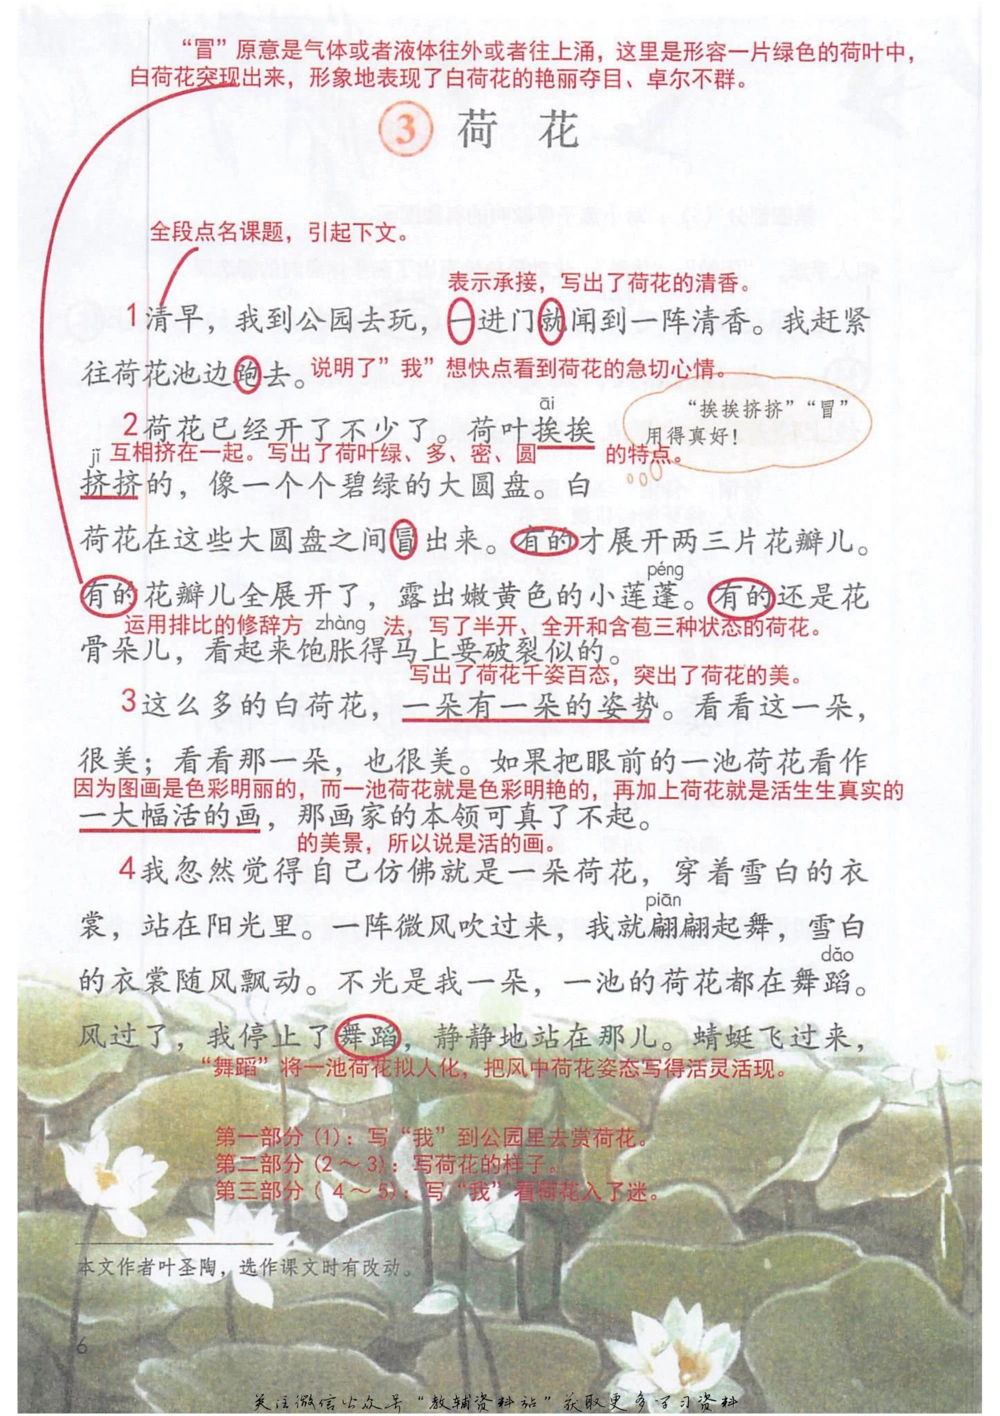 “冒”原意是气体或者液体往外或者往上涌，这里是形容一片绿色的荷叶中，
白荷花突现出来，形象地表现了白荷花的艳丽夺目、卓尔不群。
3 荷 花
全段点名课题，引起下文。
表示承接，写出了荷花的清香。
1清早，我到公园去玩，一进门就闻到一阵清香。我赶紧
往荷花池边跑去。说明了”我”想快点看到荷花的急切心情。
āi
“挨挨挤挤”“冒”
用得真好！
2荷花已经开了不少了。荷叶挨挨
jǐ 互相挤在一起。写出了荷叶绿、多、密、圆 的特点。
挤挤的，像一个个碧绿的大圆盘。白
荷花在这些大圆盘之间冒出来。有的才展开两三片花瓣儿。
péng
有的花瓣儿全展开了，露出嫩黄色的小莲蓬。有的还是花
运用排比的修辞方 zhàng 法，写了半开、全开和含苞三种状态的荷花。
骨朵儿，看起来饱胀得马上要破裂似的。
写出了荷花千姿百态，突出了荷花的美。
3这么多的白荷花，一朵有一朵的姿势。看看这一朵，
很美；看看那一朵，也很美。如果把眼前的一池荷花看作
因为图画是色彩明丽的，而一池荷花就是色彩明艳的，再加上荷花就是活生生真实的
一大幅活的画，那画家的本领可真了不起。
的美景，所以说是活的画。
4我忽然觉得自己仿佛就是一朵荷花，穿着雪白的衣
piān
裳，站在阳光里。一阵微风吹过来，我就翩翩起舞，雪白
dǎo
的衣裳随风飘动。不光是我一朵，一池的荷花都在舞蹈。
风过了，我停止了舞蹈，静静地站在那儿。蜻蜓飞过来，
“舞蹈”将一池荷花拟人化，把风中荷花姿态写得活灵活现。
第一部分(1)：写“我”到公园里去赏荷花。
第二部分(2～3)：写荷花的样子。
第三部分( 4～5)：写“我”看荷花入了迷。
本文作者叶圣陶，选作课文时有改动。
6
关注微信公众号“教辅资料站”获取更多学习资料